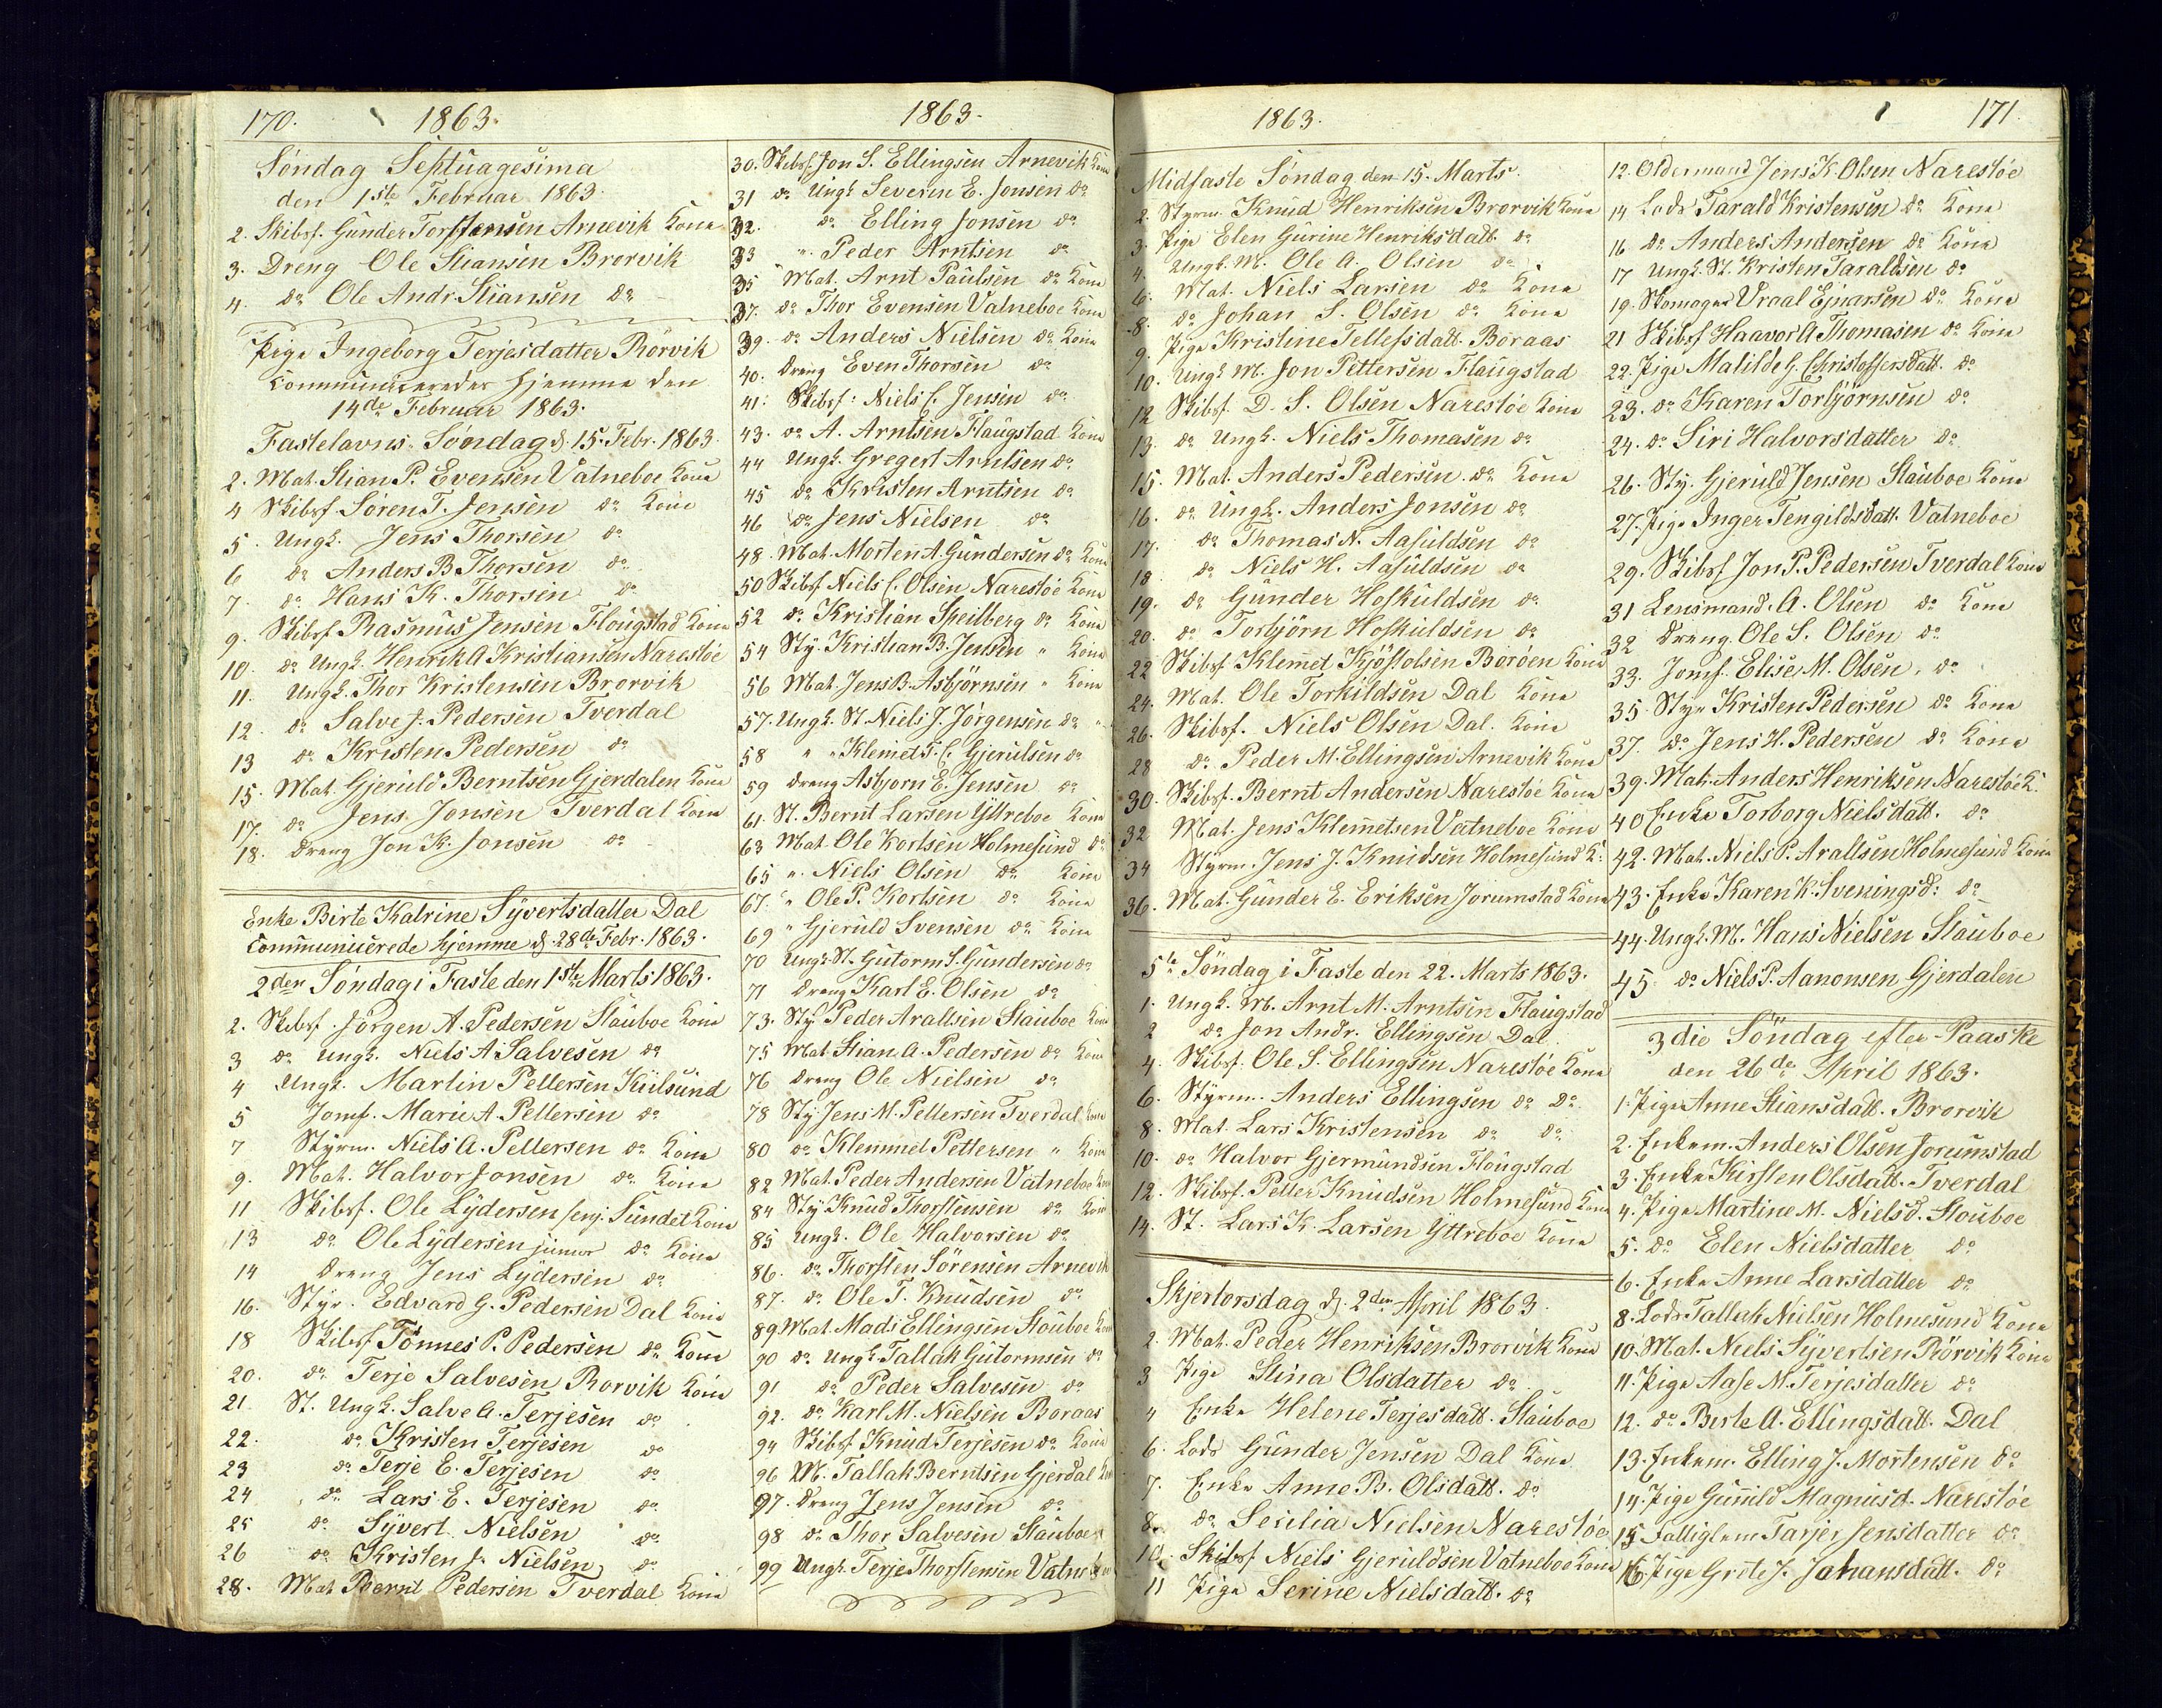 170.
1863.
Søndag Septuagesima
den 1ste Februar 1863.
2. Skibsf. Gunder Torstensen Arnevik Kona
3. Dreng Ole Stiansen Brorvik
4. do Ole Andr. Stiansen do
Pige Ingeborg Terjesdatter Rörvik
Communicereder hjemme den
14de Februar 1863.
Fastelavns-Søndag d. 15. Febr. 1863.
2. Mat. Stian P. Evensen Vatneboe Kona
4 Skibsf. Søren T. Jensen do Kona
5. Ungk. Jens Thorsen do
6 do Anders B Thorsen do
7. do Hans K. Thorsen do
9. Skibsf. Rasmus Jensen Flougstad Kona
10. do Ungk. Henrik A Kristiansen Narestöe
11. Ungk. Thor Kristensen Brorvik
12. do Salve J. Pedersen Tverdal
13 do Kristen Pedersen do
15. Mat. Gjeruld Berntsen Gjerdalen Kona
17. do Jens Jonsen Tverdal Kona
18. Dreng Jon K. Jonsen do
Enke Birte Katrine Syvertsdatter Dal
Communicerede hjemme d. 28de Febr. 1863.
2den Søndag i Faste den 1ste Marts 1863.
2. Skibsf. Jörgen A. Pedersen Stauboe Kona
3 do Ungk. Niels A Salvesen do
4 Ungk. Martin Pettersen Kiilsund
5 Jomf. Marie A. Pettersen do
7 Styrm. Niels A. Pettersen do Kona
9. Mat. Halvor Jonsen do Kona
11 Skibsf. Ole Lydersen senj. Sundet Kona
13 do Ole Lydersen junior do Kona
14 Dreng Jens Lydersen do
16. Styr. Edvard G. Pedersen Dal Kona
18 Skibsf Tönnes P. Pedersen do Kona
20. do Terje Salvesen Rorvik Kona
21. St. Ungk. Salve A. Terjesen do
22. do Kristen Terjesen do
23 do Terje E. Terjesen do
24 do Lars E. Terjesen do
25 do Syvert Nielsen do
26 do Kristen J. Nielsen do
28. Mat Bernt Pedersen Tverdal Kona
1863.
30. Skibsf. Jon S. Ellingsen Arnevik Kona
31 do Ungk Severin E. Jonsen do
32. do Elling Jonsen do
33 " Peder Arntsen do
35 Mat. Arnt Paulsen do Kona
37. do Thor Evensen Vatneboe Kona
39. do Anders Nielsen do Kona
40. Dreng Even Thorsen do
41. Skibsf. Niels C. Jensen do
43. do A. Arntsen Flaugstad Kona
44 Ungk. Gregert Arntsen do
45 do Kristen Arntsen do
46 do Jens Nielsen do
48. Mat. Morten A. Gundersen do Kona
50 Skibsf Niels C. Olsen Narestöe Kona
52 do Kristian Speilberg do Kona
54 Sty. Kristian B. Jensen " Kona
56 Mat. Jens B. Asbjörnsen " Kona
57. Ungk. St. Niels J. Jörgensen do
58 " " Klemet T. C. Gjerulsen do
59 Dreng Asbjorn E. Jensen do
61. St. Bernt Larsen Yttreboe Kona
63 Mat. Ole Kortsen Holmesund do
65 " Niels Olsen do Kona
67. " Ole P. Kortsen do Kona
69 " Gjeruld Svensen do Kona
70 Ungk. St. Gutorm S. Gundersen do
71 Dreng Karl E. Olsen do
73. Sty Peder Araltsen Stauboe Kona
75 Mat. Stian A. Pedersen do Kona
76 Dreng Ole Nielsen do
78 Sty. Jens M. Pettersen Tverdal Kona
80 do Klemmet Pettersen " Kona
82 Mat. Peder Andersen Vatneboe Kona
84 Sty Knud Thorstensen do Kona
85 Ungk. Ole Halvorsen do
86. do Thorsten Sörensen Arnevik
87. do Ole T. Knudsen do
89 Mat. Mads Ellingsen Stauboe Kona
90 do Ungk. Tallak Gutormsen do
91 do Peder Salvesen do
92. do Karl M. Nielsen Boraas
94 Skibsf Knud Terjesen do Kona
96 M. Tallak Berntsen Gjerdal Kona
97. Dreng Jens Jensen do
98 do Thor Salvesen Stauboe
99 Ungk. Terje Thorstensen Vatneboe
1863.
Midfaste Søndag den 15. Marts.
2. Styrm. Knud Henriksen Brorvik Kona
3. Pige Elen Gurine Henriksdatt. do
4. Ungk. M. Ole A. Olsen do
6. Mat. Niels Larsen do Kona
8. do Johan S. Olsen do Kona
9. Pige Kristine Tellefsdatt. Boraas
10. Ungk M. Jon Pettersen Flaugstad
12 Skibsf. D. S. Olsen Narestöe Kona
13. do Ungk. Niels Thomasen do
15. Mat. Anders Pedersen do Kona
16. do Ungk. Anders Jonsen do
17. do Thomas N. Aasuldsen do
18 do Niels H. Aasuldsen do
19. do Gunder Hofkuldsen do
20. do Torbjörn Hofkuldsen do
22 Skibsf. Klemet Kjöstolsen Boröen Kona
24. Mat. Ole Torkildsen Dal Kona
26. Skibsf. Niels Olsen Dal. Kona
28 do Peder M. Ellingsen Arnevik Kona
30. Skibsf. Bernt Andersen Narestöe Kona
32 Mat. Jens Klemetsen Vatneboe Kona
34 Styrm. Jens J. Knudsen Holmesund K:
36. Mat. Gunder E. Eriksen Jorumstad Kona
5te Søndag i Faste den 22. Marts 1863.
1. Ungk. M. Arnt M. Arntsen Flaugstad
2 do Jon Andr. Ellingsen Dal.
4. Skibsf. Ole S. Ellingsen Narestöe Kona
6. Styrm. Anders Ellingsen do do
8. Mat. Lars Kristensen do do
10. do Halvor Gjermundsen Flougstad
12. Skibsf. Petter Knudsen Holmesund Kona
14. St. Lars K. Larsen Yttreboe Kona
Skjertorsdag d. 2den April 1863.
2. Mat. Peder Henriksen Brorvik Kona
3 Pige Stina Olsdatter do
4 Enke Helene Terjesdatt. Stauboe
6. Lods Gunder Jensen Dal Kona
7. Enke Anne B. Olsdatt. do
8. do Secilia Nielsen Narestöe
10. Skibsf Niels Gjeruldsen Vatneboe Kona
11 Pige Serine Nielsdatt. do
171.
12. Oldermand Jens K. Olsen Narestöe
14 Lods Tarald Kristensen do Kona
16 do Anders Andersen do Kona
17 Ungk. St. Kristen Taraldsen do
19. Skomager Vraal Ejnarsen do Kona
21 Skibsf Haavor A Thomasen do Kona
22. Pige Matilde G. Christoffersdatt. do
23. do Karen Torbjörnsen do
24. do Siri Halvorsdatter do
26. Sty. Gjeruld Jensen Stauboe Kona
27. Pige Inger Tengildsdatt. Vatneboe
29. Skibsf Jon P. Pedersen Tverdal Kona
31 Lensmand. A. Olsen do Kona
32 Dreng Ole S. Olsen do
33. Jomf. Elise M. Olsen. do
35. Styr Kristen Pedersen do Kona
37. do Jens H. Pedersen do Kona
39. Mat. Anders Henriksen Narestöe K.
40 Enke Torborg Nielsdatt. do
42. Mat. Niels P. Araltsen Holmesund Kona
43. Enke Karen K. Sveningsd: do
44. Ungk. M. Hans Nielsen Stauboe
45 do Niels P. Aanonsen Gjerdalen
3die Söndag efter Paaske
den 26de April 1863.
1. Pige Anne Stiansdatt. Brorvik
2. Enkem. Anders Olsen Jorumstad
3. Enke Kirsten Olsdatt. Tverdal
4. Pige Martine M. Nielsd. Stouboe
5. do Elen Nielsdatter do
6. Enke Anne Larsdatter do
8. Lods Tallak Nielsen Holmesund Kona
10. Mat. Niels Syvertsen Rörvik Kona
11. Pige Aase M. Terjesdatter do
12. do Birte A. Ellingsdatt. Dal
13. Enkem. Elling J. Mortensen do
14. Pige Gunild Magnusd. Narestöe
15 Fattiglem Tarjer Jensdatter do
16. Pige Grete J. Johansdatt. do